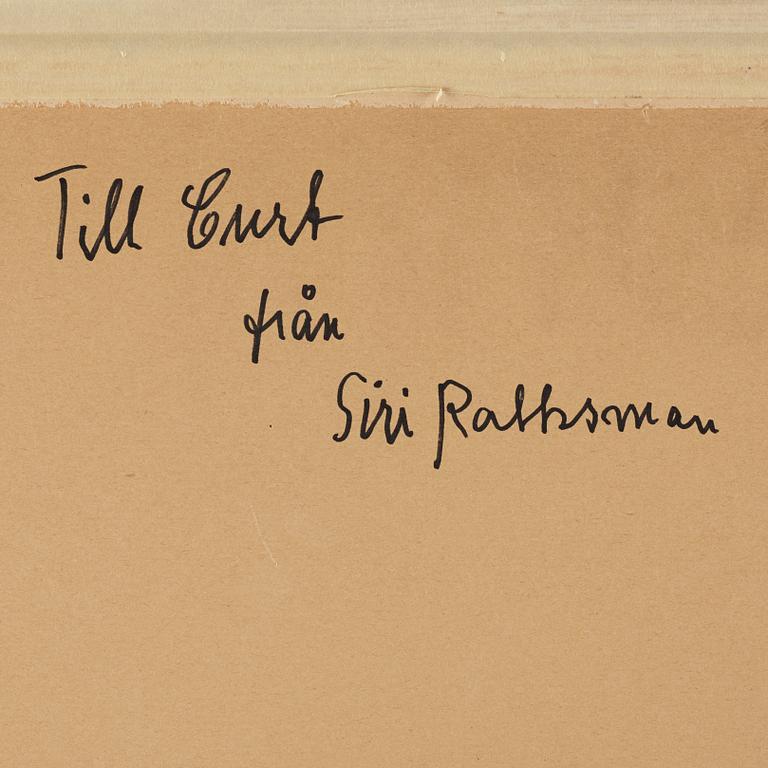 Till Curt
från
Siri Rathsman